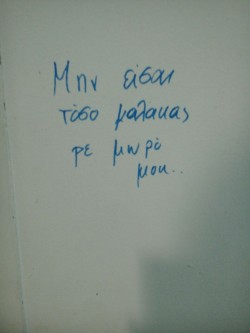 Μην είσαι
τόσο μαλακας
ρε μωρό
μου..